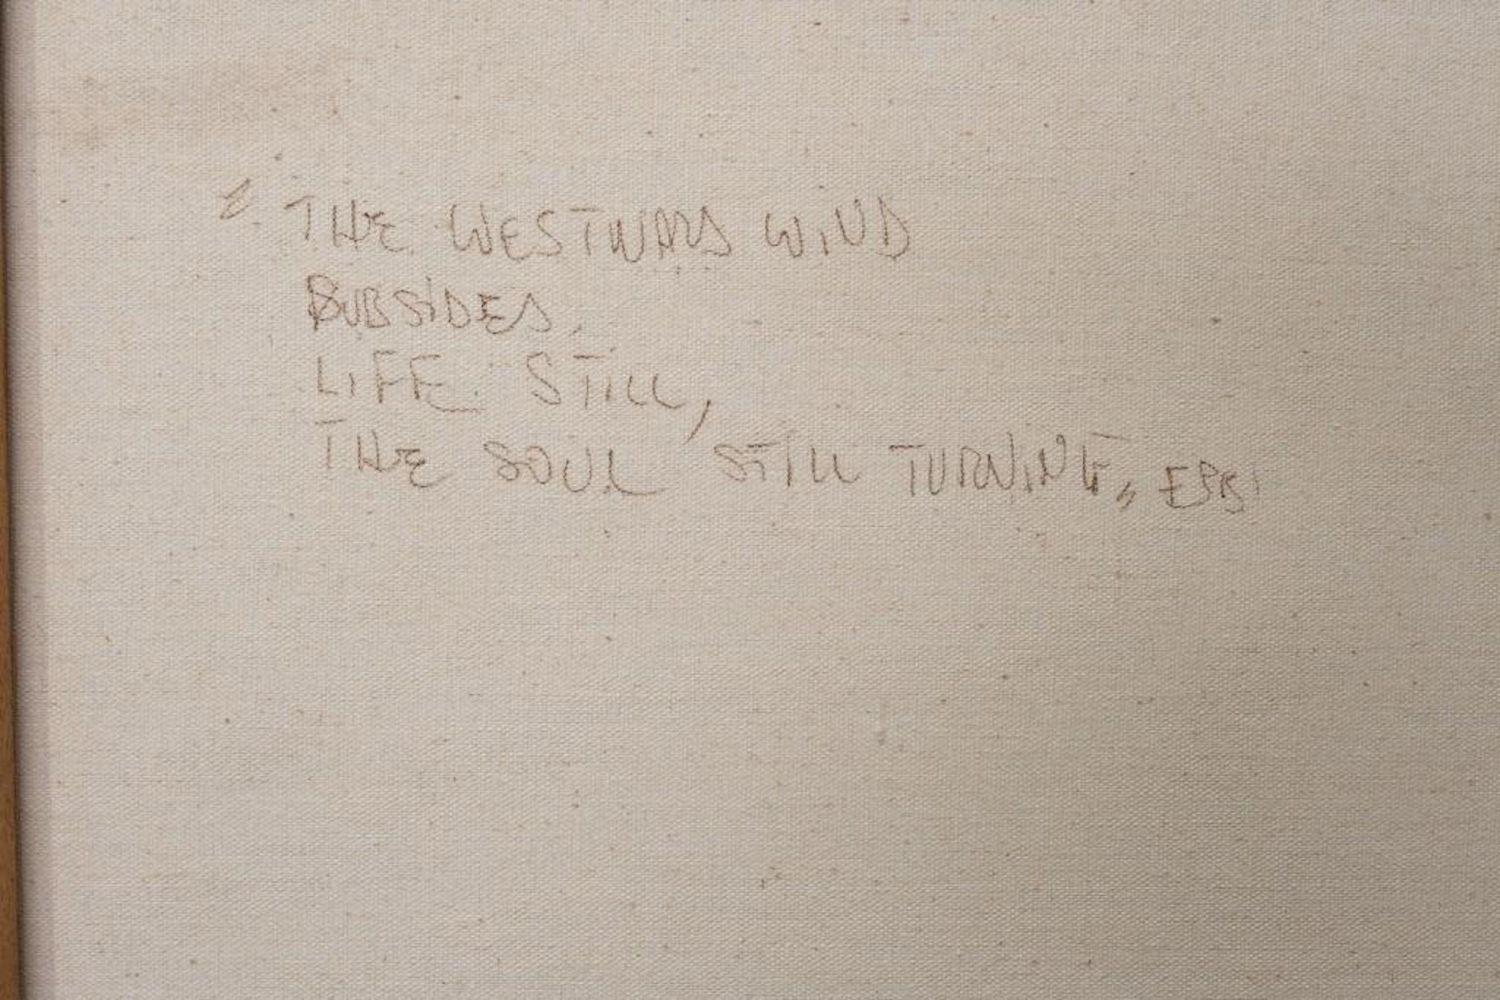 " THE WESTWARD WIND
SUBSIDES,
LIFE STILL,
THE SOUL STILL TURNING"